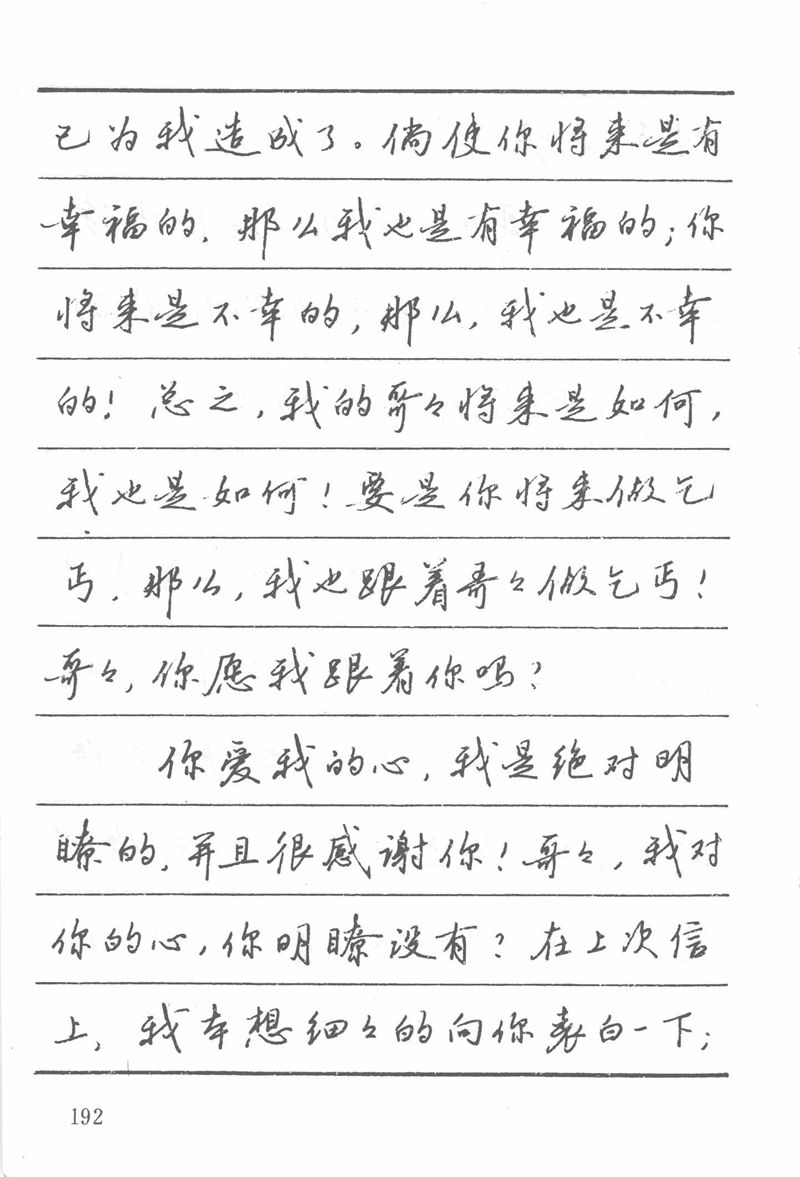 已为我造成了。倘使你将来是有
幸福的，那么我也是有幸福的；你
将来是不幸的，那么，我也是不幸
的！总之，我的哥々将来是如何，
我也是如何！要是你将来做乞
丐，那么，我也跟着哥々做乞丐！
哥々，你愿我跟着你吗？
你爱我的心，我是绝对明
瞭的，并且很感谢你！哥々，我对
你的心，你明瞭没有？在上次信
上，我本想细々的向你表白一下；
192